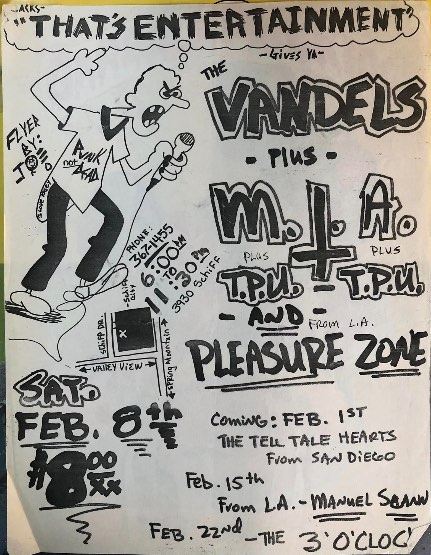 JACKS-
"THAT'S ENTERTAINMENT"
-GIVES YA-
THE
VANDELS
- PLUS -
M.I.A.
PLUS PLUS
T.P.U. - T.P.U.
- AND -
FROM L.A.
PLEASURE ZONE
FLYER
BY:
PUNK
not
DEAD
PHONE:
367-1455
6:00 PM
TO
11:30 PM
3930 SCHIFF
SCHIFF DR.
VALLEY VIEW
SPRING MOUNTAIN
X
SAT.
FEB. 8th
$8.00
XX
COMING: FEB. 1ST
THE TELL TALE HEARTS
FROM SAN DIEGO
FEB. 15th
FROM L.A. - MANUEL SCANN
FEB. 22nd - THE 3 O'CLOC